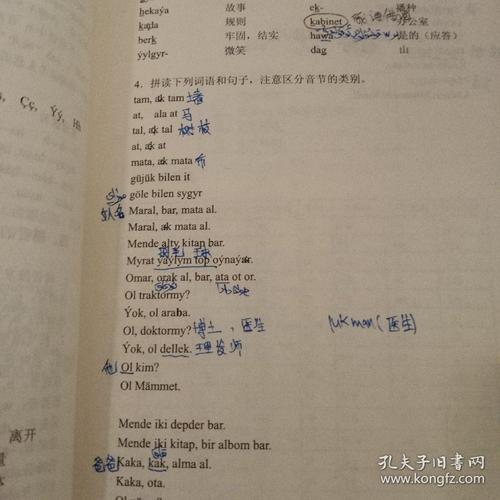 hekaýa 故事 ek- 播种
kada 规则 kabinet 办公室
berk 牢固，结实 hawa 是的（应答）
ýylgyr- 微笑 dag 山
4. 拼读下列词语和句子，注意区分音节的类别。
tam, ak tam 墙
at, ala at 马
tal, ak tal 树枝
at, ak at
mata, ak mata 布
güjük bilen it
göle bilen sygyr
女人名 Maral, bar, mata al.
Maral, ak mata al.
Mende alty kitap bar.
Myrat ýaýlym top oýnaýar.
Omar, orak al, bar, ata ot or.
Ol traktormy?
Ýok, ol araba.
Ol, doktormy? 博士，医生 lukman（医生）
Ýok, ol dellek. 理发师
他 Ol kim?
Ol Mämmet.
Mende iki depder bar.
离开
Mende iki kitap, bir albom bar.
爸爸 Kaka, kak, alma al.
Kaka, ota.
孔夫子旧书网
www.kongfz.com